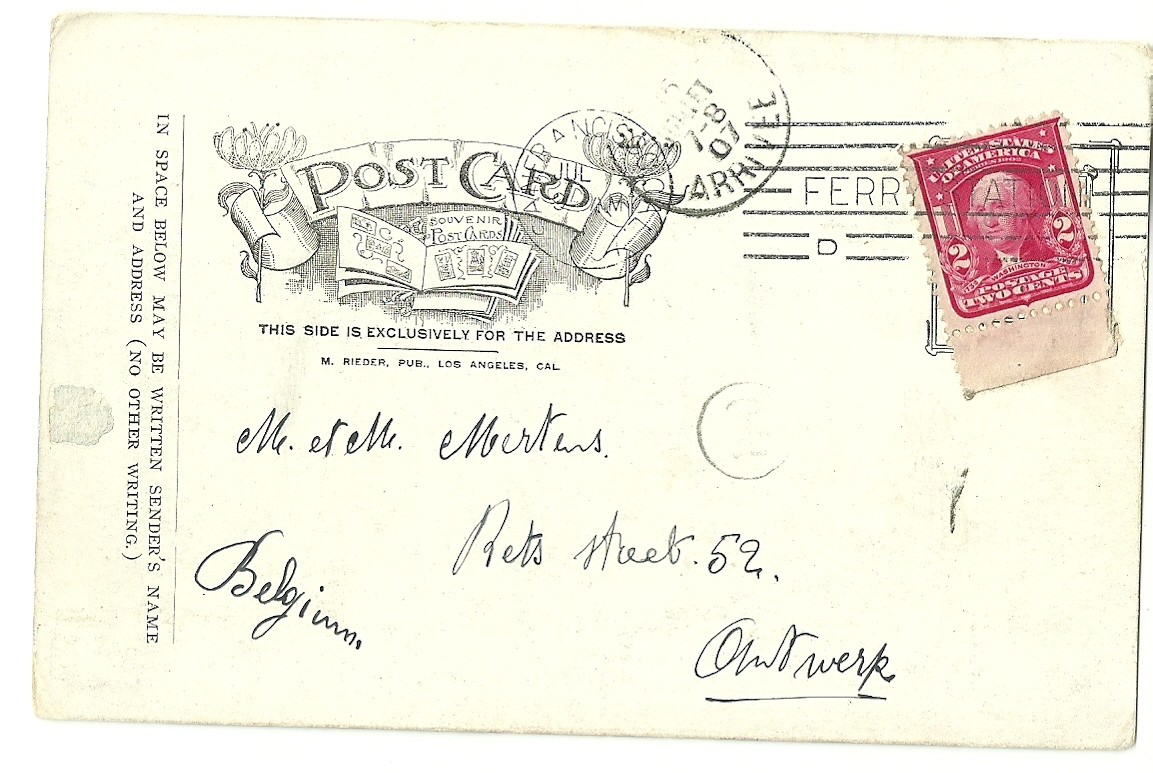 IN SPACE BELOW MAY BE WRITTEN SENDER'S NAME
AND ADDRESS (NO OTHER WRITING.)
POST CARD
SOUVENIR
POST CARDS
THIS SIDE IS EXCLUSIVELY FOR THE ADDRESS
M. RIEDER, PUB., LOS ANGELES, CAL.
JUL
AM
7-8
07
ARRIVÉE
FERR
D
UNITED STATES
OF AMERICA
SERIES 1902
2 2
WASHINGTON
POSTAGE
TWO CENTS
M. et M. Mertens.
Rets street. 52.
Antwerp
Belgium.